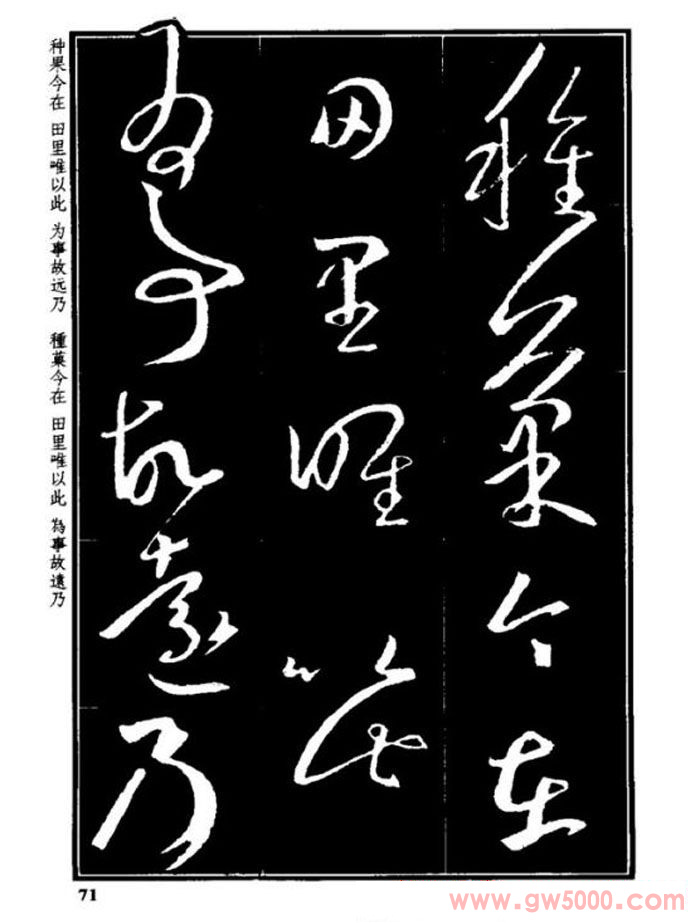 種菓今在
田里唯以此
為事故遠乃
种果今在 田里唯以此 为事故远乃 種菓今在 田里唯以此 為事故遠乃
71
www.gw5000.com